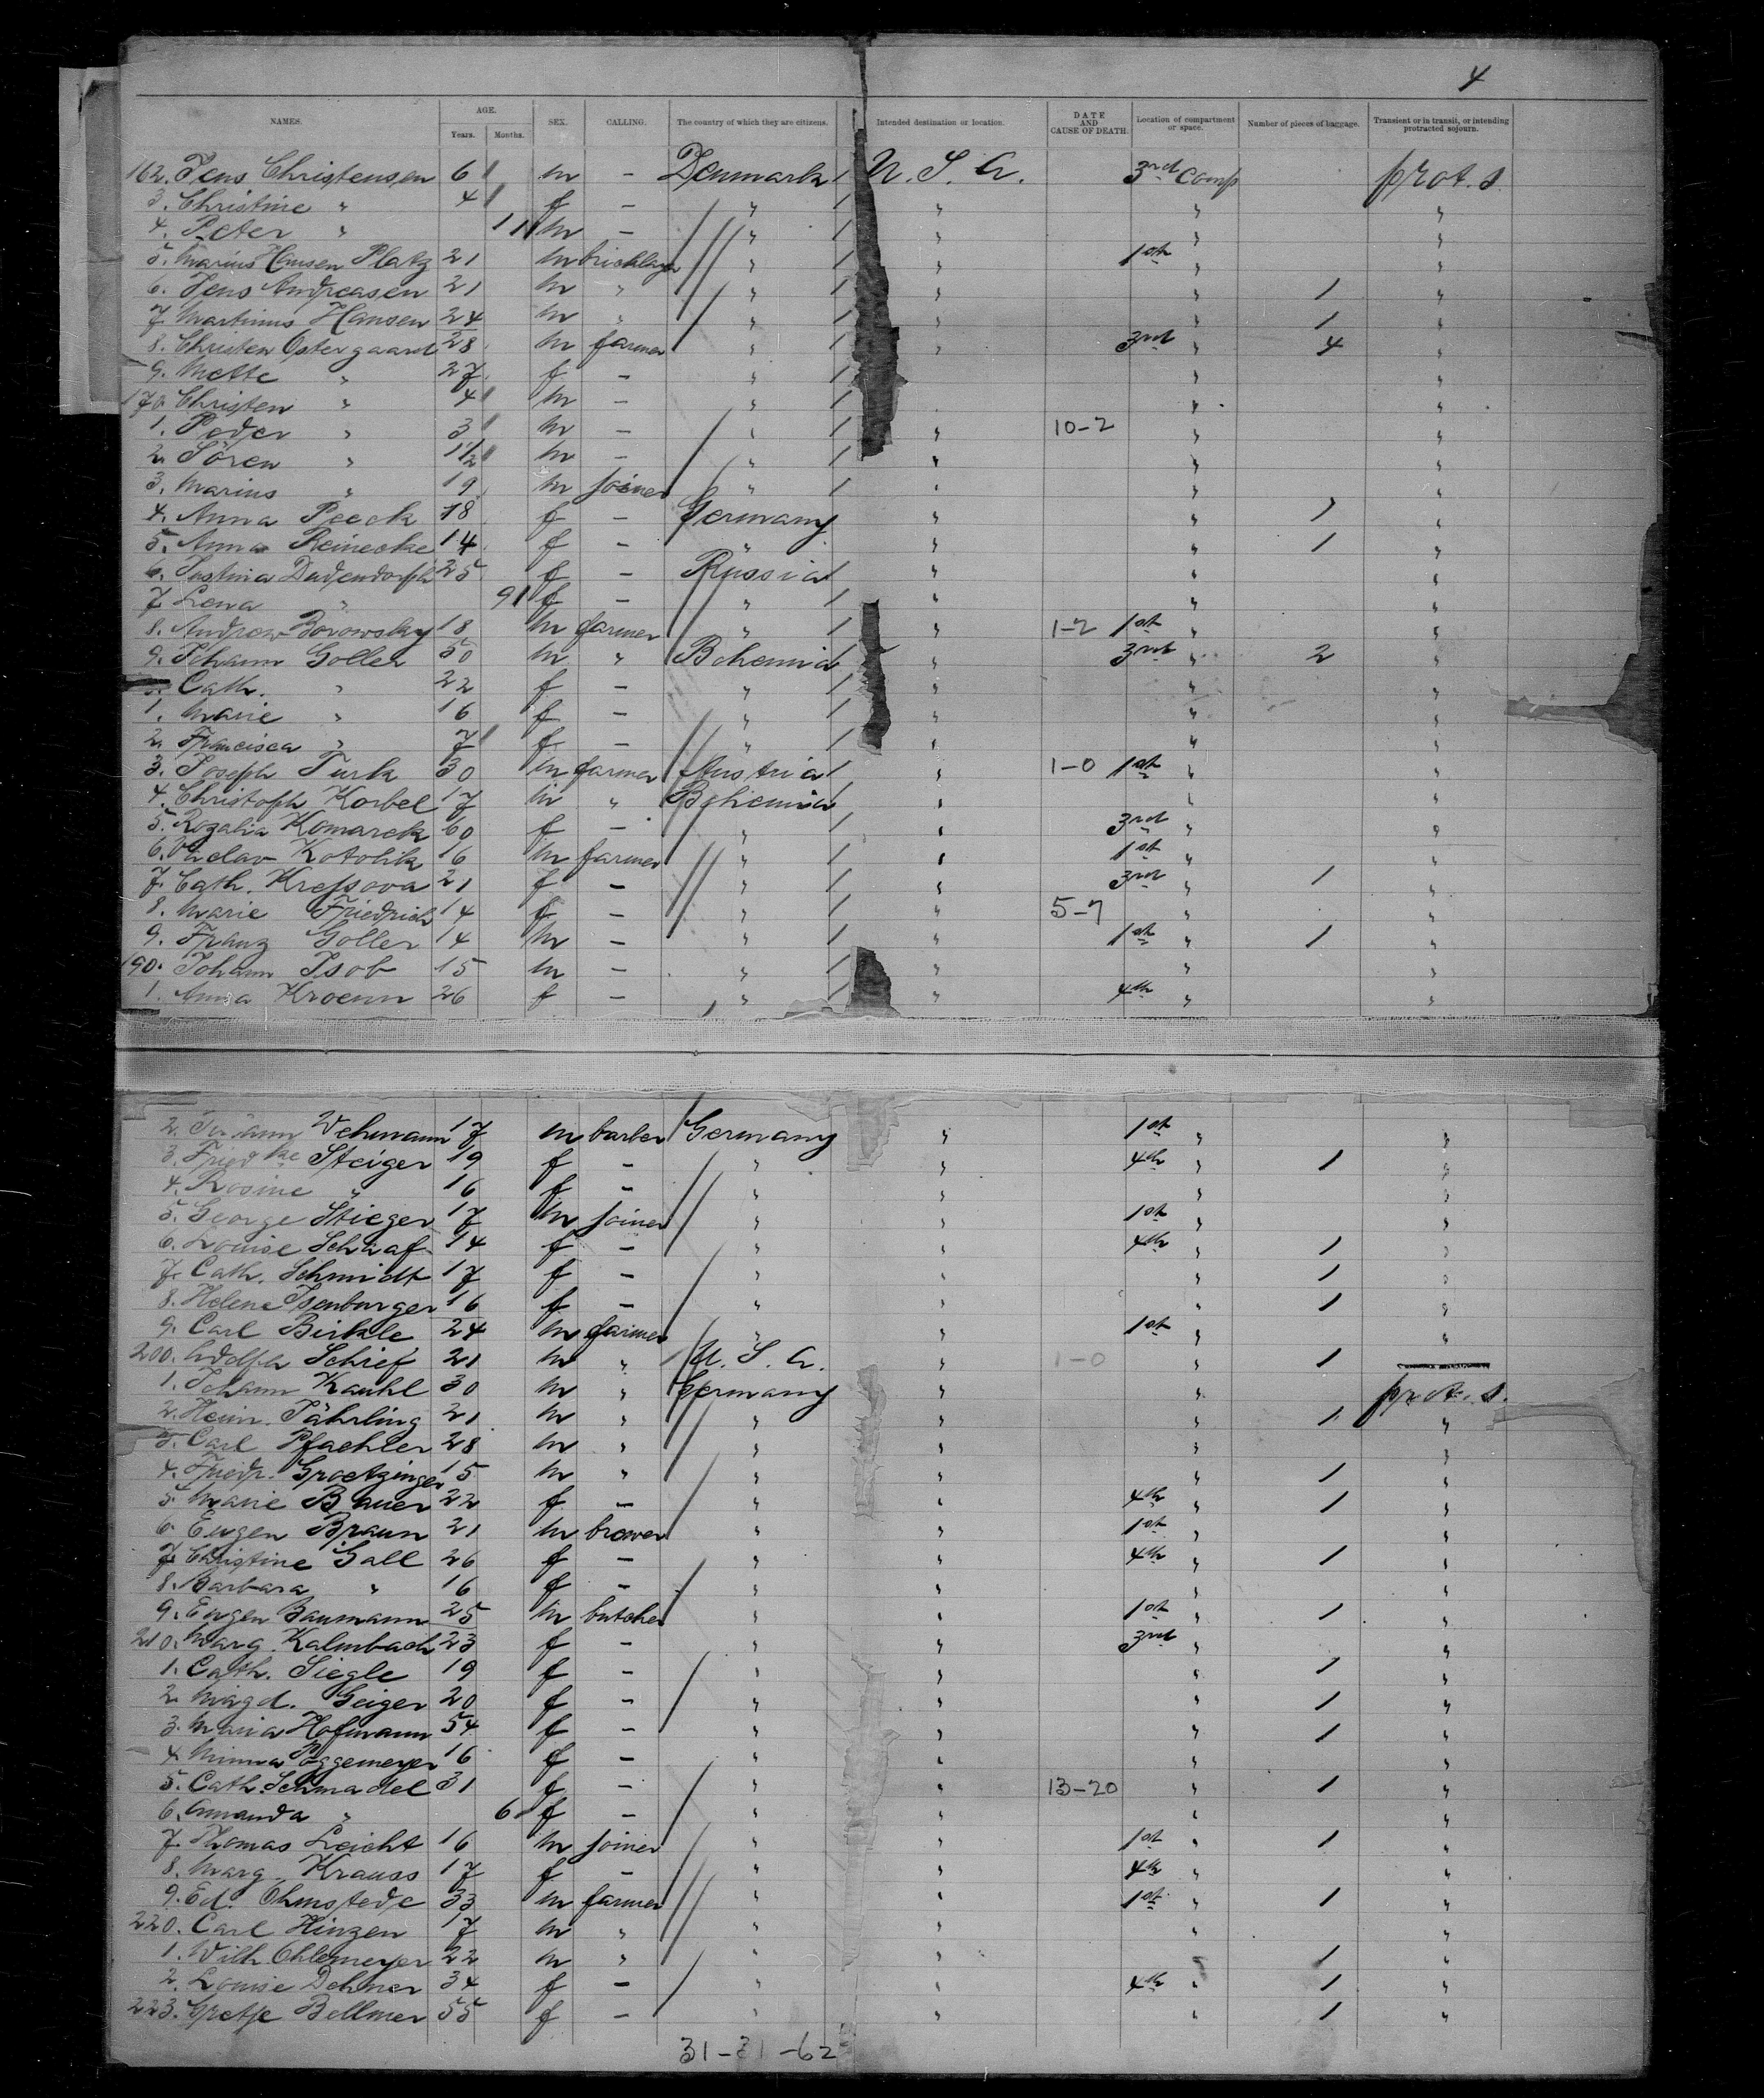 4
NAMES. AGE. Years. Months. SEX. CALLING. The country of which they are citizens. Intended destination or location. DATE AND CAUSE OF DEATH. Location of compartment or space. Number of pieces of baggage. Transient or in transit, or intending protracted sojourn.
162. Jens Christensen 6 m - Denmark U. S. A. 3rd Comp prot. s.
3. Christine " 4 f - " " " "
4. Peter " 11 m - " " " "
5. Marius Hansen Platz 21 m bricklayer " " 1st " "
6. Jens Andreasen 21 m " " " " 1 "
7. Martinus Hansen 24 m " " " " 1 "
8. Christen Ostergaard 28 m farmer " " 3rd " 4 "
9. Mette " 27 f - " " "
170 Christen " 4 m - " " "
1. Peder " 3 m - " " 10-2 " "
2. Sören " 1 1/2 m - " " " "
3. Marius " 19 m joiner " " " "
4. Anna Peeck 18 f - Germany " " 1 "
5. Anna Reinecke 14 f - " " " 1 "
6. 25 f - Russia " " "
7. Lena " 9 f - " " " "
8. Andrew Borowsky 18 m farmer " " 1-2 1st " "
9. Johann Goller 50 m " Bohemia " 3rd " 2 "
Cath. " 22 f - " " "
1. Marie " 16 f - " " "
2. Francisca " 7 f - " " " "
3. Joseph Turk 30 m farmer Austria " 1-0 1st " "
4. Christoph Korbel 17 m " Bohemia " " "
5. Rozalia Komarek 60 f - " " 3rd " "
6. Vaclav Kotohlik 16 m farmer " " 1st " "
7. Cath. Kressova 21 f - " " 3rd " 1 "
8. Marie Friedrich 14 f - " " 5-7 " "
9. Franz Goller 14 m - " " 1st " 1 "
190. Johann Isob 15 m - " " " "
1. Anna Kroenn 26 f - " " 4th " "
2. Johann Wehmann 17 m barber Germany " 1st " "
3. Friedke Steiger 19 f - " " 4th " 1 "
4. Rosine " 16 f - " " " "
5. George Stieger 17 m joiner " " 1st " "
6. Louise Schaaf 14 f - " " 4th " 1 "
7. Cath. Schmidt 17 f - " " " 1 "
8. Helene Isenburger 16 f - " " " 1 "
9. Carl Birkle 24 m farmer " " 1st " "
200. Adolph Schief 21 m " U. S. A. " 1-0 " 1
1. Johann Kauhl 30 m " Germany " " prot. s.
2. Heinr. Jährling 21 m " " " " 1 "
3. Carl Pfaehler 28 m " " " " "
4. Friedr. Groetzinger 15 m " " " " 1 "
5. Marie Bauer 22 f - " " 4th " 1 "
6. Eugen Braun 21 m brewer " " 1st " "
7. Christine Gall 26 f - " " 4th " 1 "
8. Barbara " 16 f - " " " "
9. Eugen Baumann 25 m butcher " " 1st " 1 "
210. Marg. Kalmbach 23 f - " " 3rd " "
1. Cath. Siegle 19 f - " " " 1 "
2. Magd. Geiger 20 f - " " " 1 "
3. Maria Hofmann 54 f - " " " 1 "
4. Minna Poggemeyer 16 f - " " " "
5. Cath. Schmadel 31 f - " " 13-20 " 1 "
6. Amanda " 6 f - " " " "
7. Thomas Leicht 16 m joiner " " 1st " 1 "
8. Marg. Krauss 17 f - " " 4th " "
9. Ed. Ohmstede 33 m farmer " " 1st " 1 "
220. Carl Hinzen 17 m " " " " "
1. Wilh. Ohlemeyer 22 m " " " " 1 "
2. Louise Dehmer 34 f - " " 4th " 1 "
223. Gretje Bollmer 55 f - " " " 1 "
31-31-62